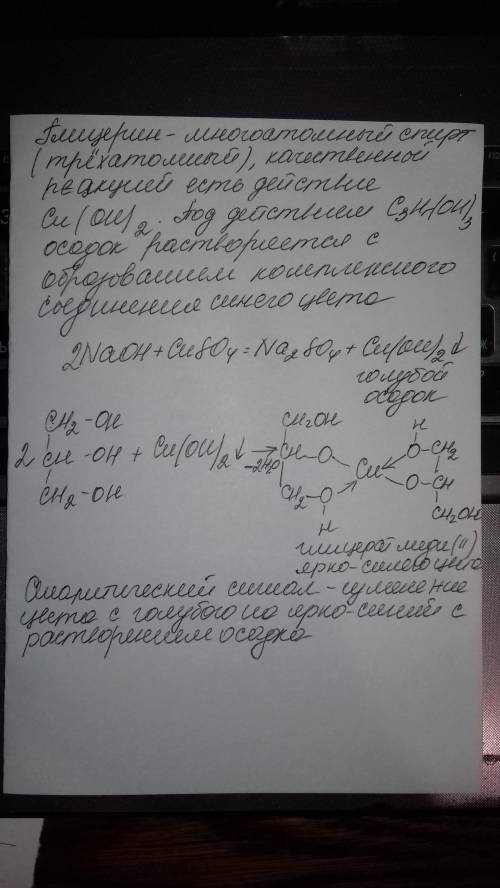 Глицерин - многоатомный спирт
(трёхатомный), качественной
реакцией есть действие
Cu(OH)2. Под действием C3H5(OH)3
осадок растворяется с
образованием комплексного
соединения синего цвета
2NaOH + CuSO4 = Na2SO4 + Cu(OH)2↓
голубой
осадок
CH2-OH
2 CH -OH + Cu(OH)2↓ →
-2H2O
CH2-OH
CH2OH
CH - O
CH2-O
H
Cu
H
O - CH2
O - CH
CH2OH
глицерат меди (II)
ярко-синего цвета
Аналитический сигнал - изменение
цвета с голубого на ярко-синий с
растворением осадка